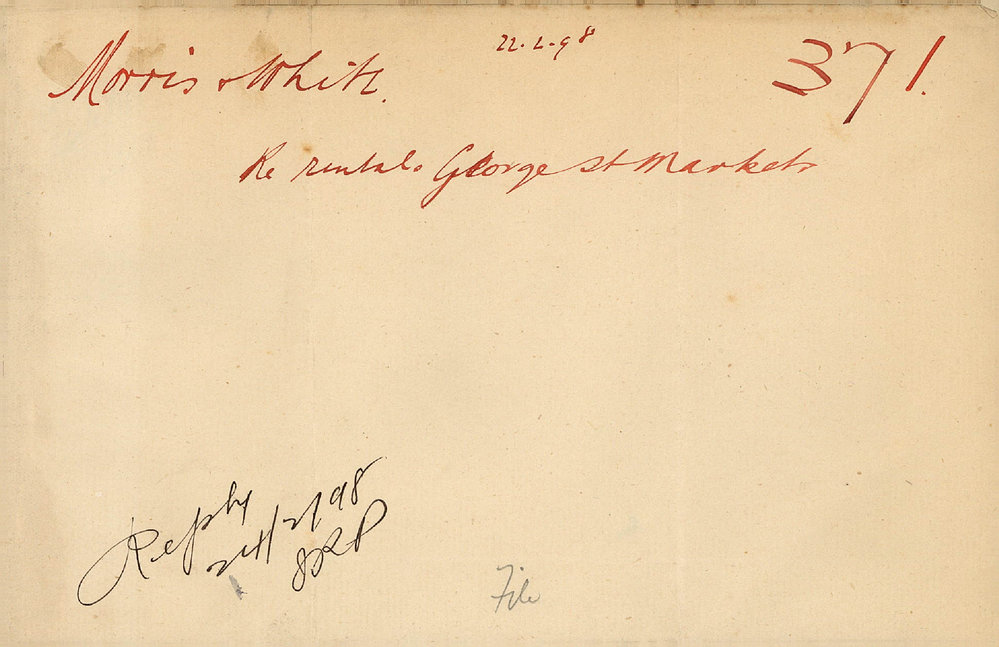 Morris & White. 22.2.98 371.
Re rentals George St Markets
Reply
24/2/98
File